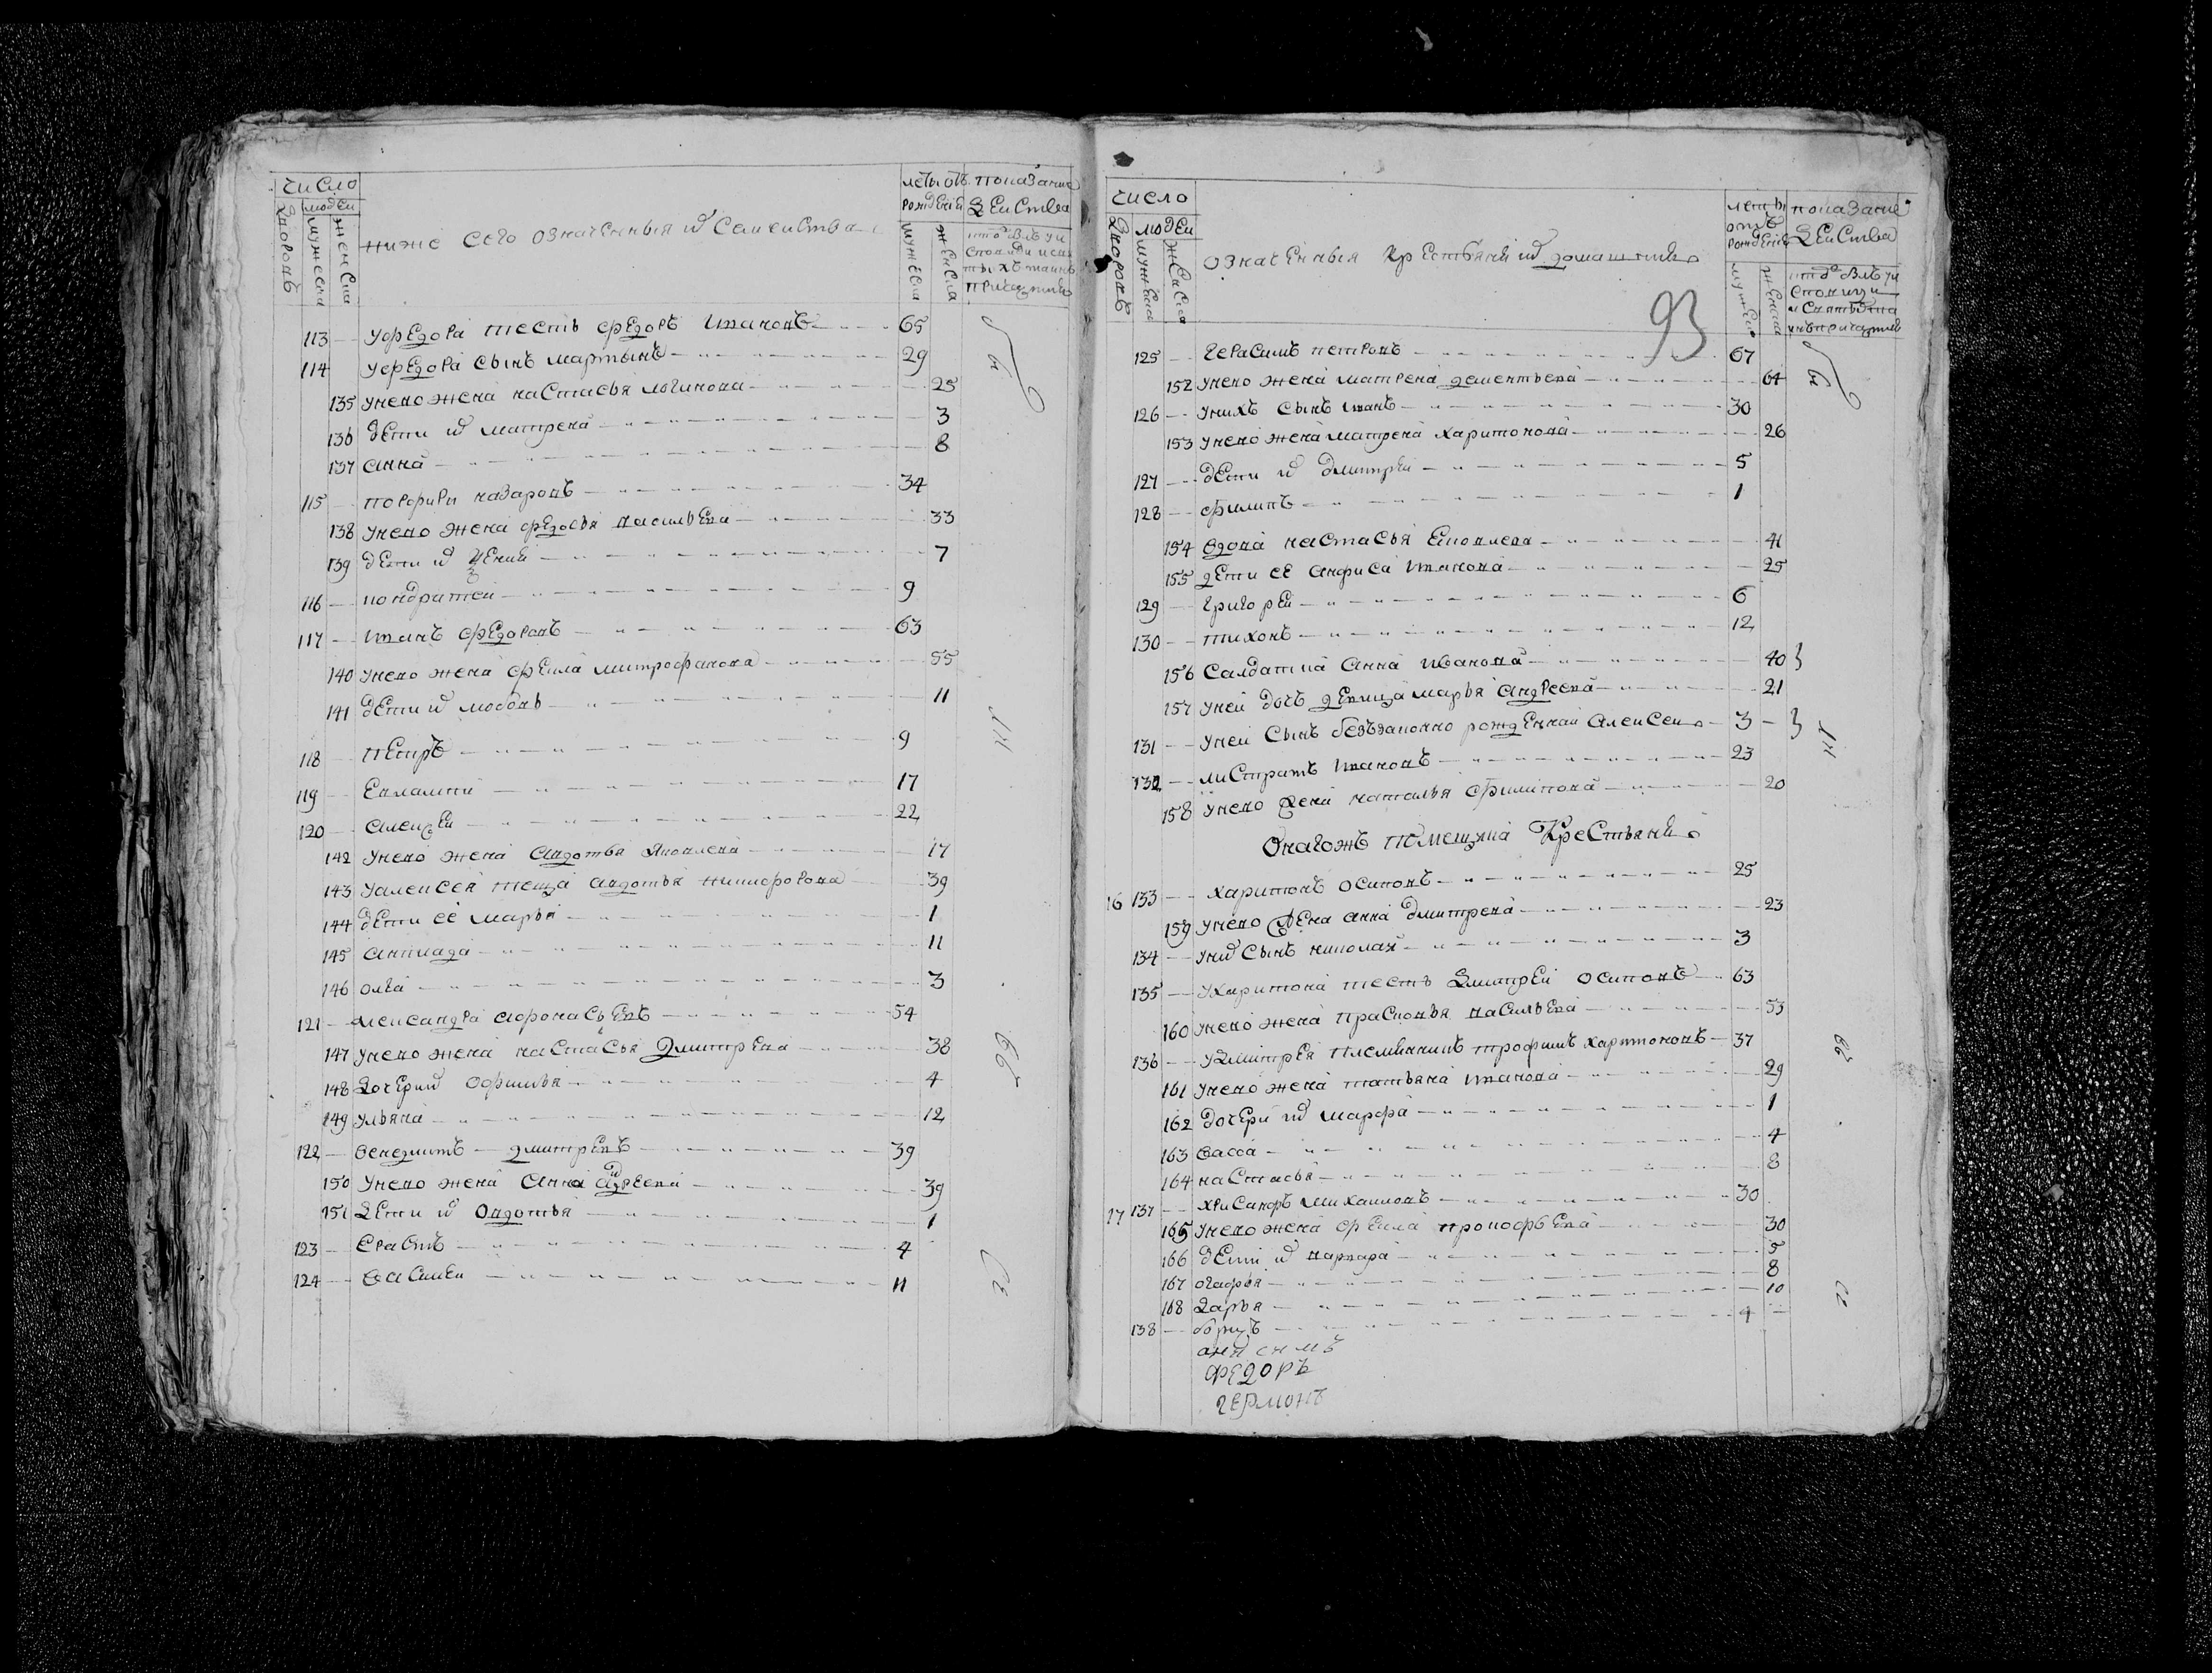 число
людей
дворовъ
мужеска
женска
ниже сего означенныя их семейства
леты от рождения
мужеска
женска
показание действа
113 у Федора тесть Федоръ Ивановъ 65
114 у Федора сынъ Мартынъ 29
135 у него жена Настасья Логинова 25
136 дети их Матрена 3
137 Анна 8
115 Порфири Назаровъ 34
138 у него жена Федосья Васильева 33
139 дети их 7
116 Кондратей 9
117 Иванъ Федоровъ 63
140 у него жена Фекла Митрофанова 55
141 дети их Любовь 11
118 Петръ 9
119 Евлампи 17
120 Алексей 22
142 у него жена Авдотья Яковлева 17
143 у Алексея теща Авдотья Никифорова 39
144 дети ее Марья 1
145 11
146 Олга 3
121 Александра Афонасьевъ 54
147 у него жена Настасья Дмитрева 38
148 дочери их Офимья 4
149 Ульяна 12
122 Венедиктъ Дмитревъ 39
150 у него жена Анна Адреева 39
151 дети их Овдотья 1
123 Ерастъ 4
124 Василеи 11
число
людей
дворовъ
мужеска
женска
означенныя крестьяне их домашния
93
леты отъ рождения
мужеска
женска
показание действа
125 Герасимъ Петровъ 67
152 у него жена Матрена Дементьева 64
126 у нихъ сынъ Иванъ 30
153 у него жена Матрена Харитонова 26
127 дети их Дмитрей 5
128 Филипъ 1
154 вдова Настасья Яковлева 41
155 дети ее Анфиса Иванова 25
129 Григорей 6
130 Тихонъ 12
156 салдатка Анна Иванова 40
157 у ней дочь девица Марья Андреева 21
131 у ней сынъ беззаконно рожденнай Алексей 3
132 Ивановъ 23
158 у него жена Наталья Филипова 20
Онагожъ помещика крестьяне
16 133 Харитонъ Осиповъ 25
159 у него жена Анна Дмитрева 23
134 у них сынъ Николай 3
135 у Харитона тесть Дмитрей Осиповъ 63
160 у него жена Прасковья Васильева 53
136 у Дмитрея племянникъ Трофимъ Харитоновъ 37
161 у него жена Татьяна Иванова 29
162 дочери их Марфа 1
163 Васса 4
164 Настасья 8
17 137 Хрисанфъ Михаиловъ 30
165 у него жена Фекла Прокофьева 30
166 дети их Варвара 5
167 Огафья 8
168 Дарья 10
138 Борисъ 4
Анисимъ
Федоръ
Гермонъ